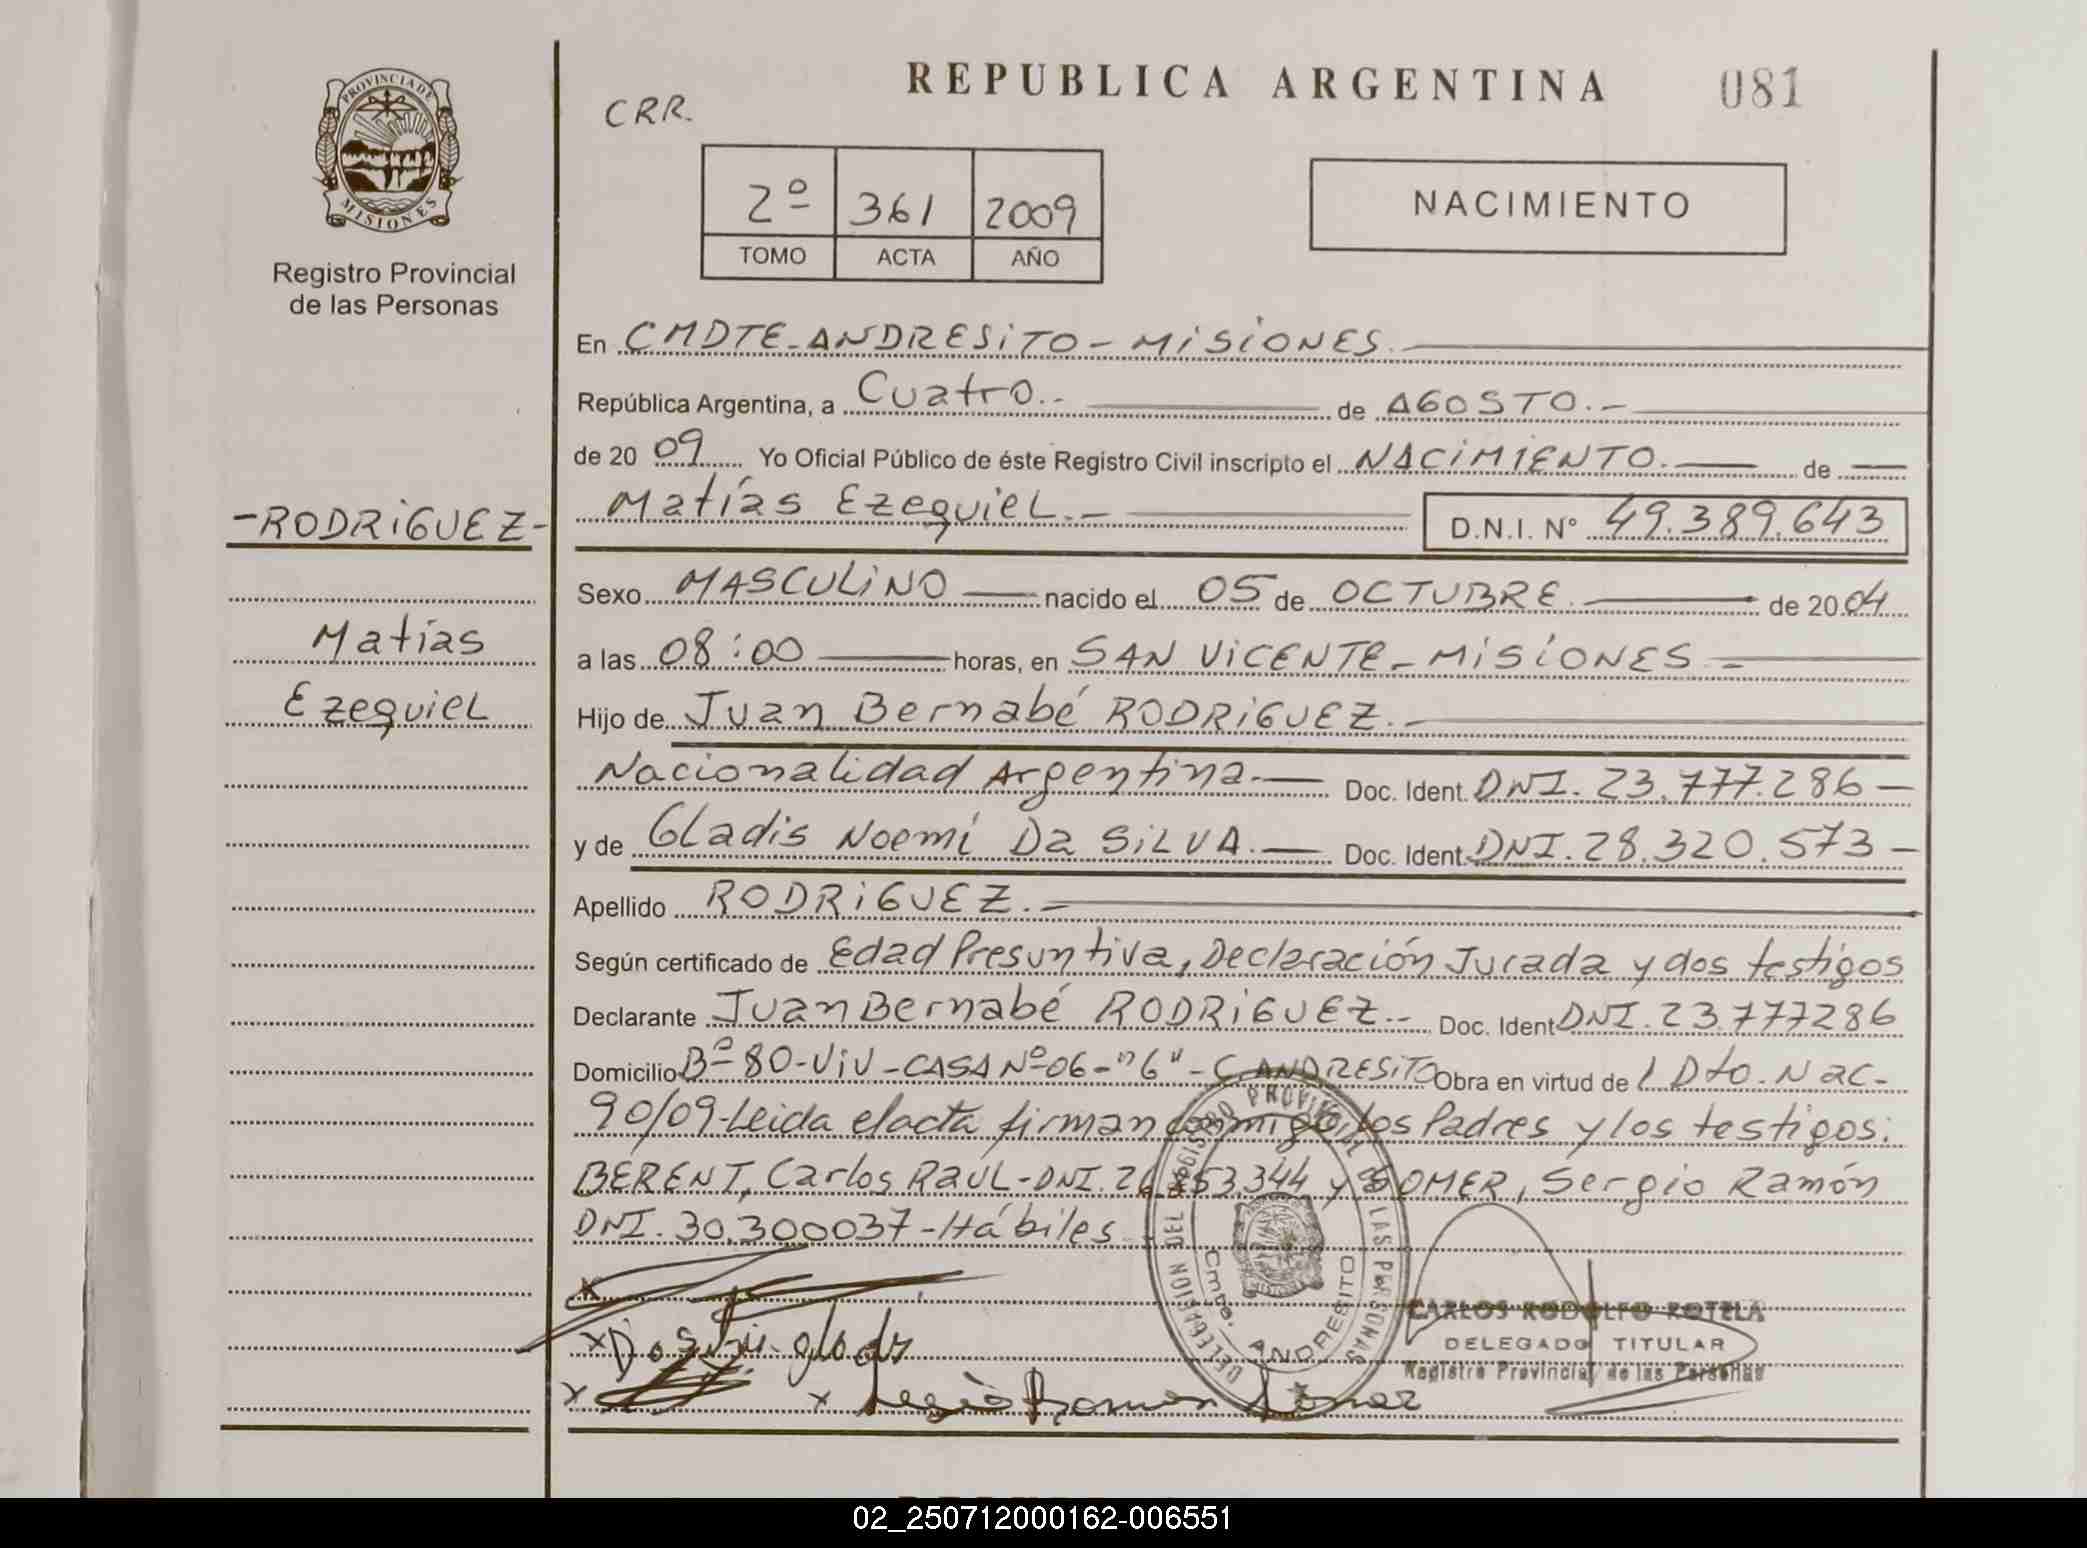 PROVINCIA DE
MISIONES
Registro Provincial
de las Personas
REPUBLICA ARGENTINA
081
CRR.
2º 361 2009
TOMO ACTA AÑO
NACIMIENTO
En CMDTE-ANDRESiTO-MiSiONES.
República Argentina, a Cuatro.- de AGOSTO.-
de 20 09 Yo Oficial Público de éste Registro Civil inscripto el NACiMIENTO. de
Matías EzequieL.- D.N.I. Nº 49.389.643
-RODRiGUEZ-
Matías
EzequieL
Sexo MASCULiNO nacido el 05 de OCTUBRE. de 20 04
a las 08:00 horas, en SAN ViCENTE-MiSiONES-
Hijo de Juan Bernabé RODRiGUEZ.-
Nacionalidad Argentina.- Doc. Ident. DNI. 23.777.286-
y de GLadis Noemí Da SiLVA.- Doc. Ident. DNI. 28.320.573-
Apellido RODRiGUEZ.-
Según certificado de Edad Presuntiva, Declaración Jurada y dos testigos
Declarante Juan Bernabé RODRiGUEZ.- Doc. Ident DNI. 23.777286
Domicilio Bº-80-ViV-CASA Nº-06-"6"-C.ANDRESiTO Obra en virtud de L Dto. Nac-
90/09-Leida el acta firman conmigo, los Padres y los testigos:
BERENT, Carlos RaUL-DNI. 26. 53.344 y SOMER, Sergio Ramón
DNI. 30.300037-Hábiles
DELEGACION DEL REGISTRO PROVINCIAL DE LAS PERSONAS
Cmdo. ANDRESITO
CARLOS RODOLFO ROTELA
DELEGADO TITULAR
Registro Provincial de las Personas
02_250712000162-006551